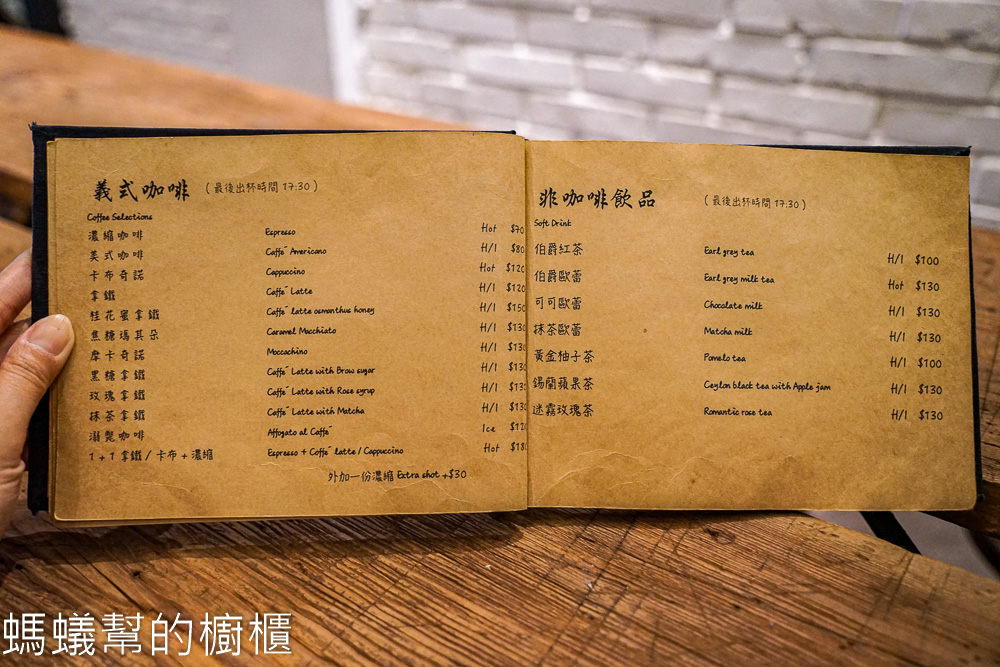 義式咖啡 (最後出杯時間 17:30)
Coffee Selections
濃縮咖啡 Espresso Hot $70
美式咖啡 Caffe´ Americano H/I $80
卡布奇諾 Cappuccino Hot $120
拿鐵 Caffe´ Latte H/I $120
桂花蜜拿鐵 Caffe´ latte osmanthus honey H/I $150
焦糖瑪其朵 Caramel Macchiato H/I $130
摩卡奇諾 Moccachino H/I $130
黑糖拿鐵 Caffe´ Latte with Brow sugar H/I $130
玫瑰拿鐵 Caffe´ Latte with Rose syrup H/I $130
抹茶拿鐵 Caffe´ Latte with Matcha H/I $130
溺斃咖啡 Affogato al Caffe´ Ice $120
1+1 拿鐵/卡布+濃縮 Espresso + Coffe´ latte / Cappuccino Hot $180
外加一份濃縮 Extra shot +$30
非咖啡飲品 (最後出杯時間 17:30)
Soft Drink
伯爵紅茶 Earl grey tea H/I $100
伯爵歐蕾 Earl grey milk tea Hot $130
可可歐蕾 Chocolate milk H/I $130
抹茶歐蕾 Matcha milk H/I $130
黃金柚子茶 Pomelo tea H/I $100
錫蘭蘋果茶 Ceylon black tea with Apple jam H/I $130
迷霧玫瑰茶 Romantic rose tea H/I $130
螞蟻幫的櫥櫃